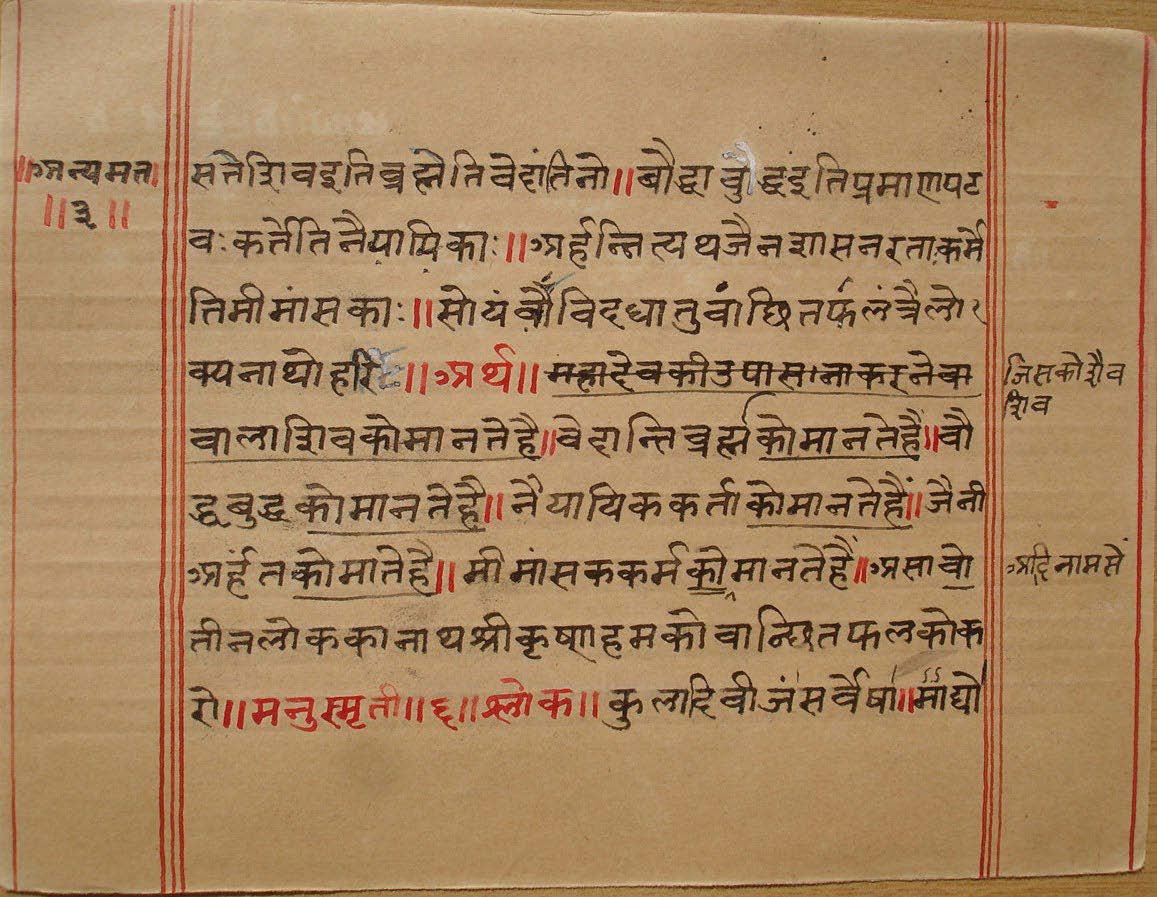 ॥अन्यमत॥
॥३॥
सतेशिवइतिब्रह्मेतिवेदांतिनो॥बौद्धाबुद्धइतिप्रमाणपट
वःकर्तेतिनैयायिकाः॥अर्हन्नित्यथजैनशासनरताकर्मे
तिमीमांसकाः॥सोयंवोविदधातुवांछितर्फलंत्रैलो
क्यनाथोहरि॥अर्थ॥महादेवकीउपासानाकरनेवा
वालाशिवकोमानतेहै॥वेदान्तिब्रह्मकोमानतेहैं॥बौ
द्धबुद्धकोमानतेहै॥नैयायिककर्ताकोमानतेहैं॥जैनी
अर्हंतकोमातेहै॥मीमांसककर्मकोमानतेहैं॥असावो
तीनलोककानाथश्रीकृष्णहमकोवान्छितफलकोक
रो॥मनुस्मृती॥६॥श्लोक॥कुलादिवीजंसर्वेषां॥माद्यो
जिसकोशैव
शिव
आदिनामसें